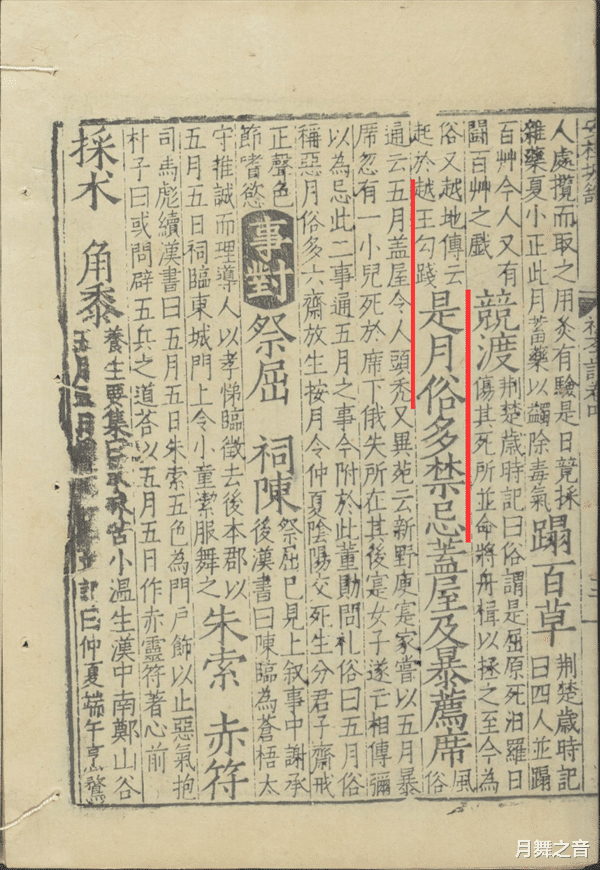 人處攬而取之用灸有驗是日競採
雜藥夏小正此月蓄藥以蠲除毒氣
蹋百草
荆楚歲時記
曰四人並蹋
百艸今人又有
鬪百艸之戲
競渡
荆楚歲時記曰俗謂是屈原死汨羅日
傷其死所並命將舟楫以拯之至今為
俗又越地傳云
起於越王勾踐
是月俗多禁忌蓋屋及暴薦席
風
俗
通云五月盖屋令人頭禿又異苑云新野庾寔家嘗以五月暴
席忽有一小兒死於席下俄失所在其後寔女子遂亡相傳彌
以為忌此二事通五月之事今附於此董勛問礼俗曰五月俗
稱惡月俗多六齋放生按月令仲夏陰陽交死生分君子齋戒
正聲色
節嗜慾
事對
祭屈 祠陳
祭屈已見上叙事中謝承
後漢書曰陳臨為蒼梧太
守推誠而理導人以孝悌臨徵去後本郡以
五月五日祠臨東城門上令小童絜服舞之
朱索 赤符
司馬彪續漢書曰五月五日朱索五色為門戶飾以止惡氣抱
朴子曰或問辟五兵之道荅以五月五日作赤靈符著心前
採朮 角黍
養生要集曰朮味苦小溫生漢中南鄭山谷
五月五日記曰仲夏端午烹鶩
月舞之音